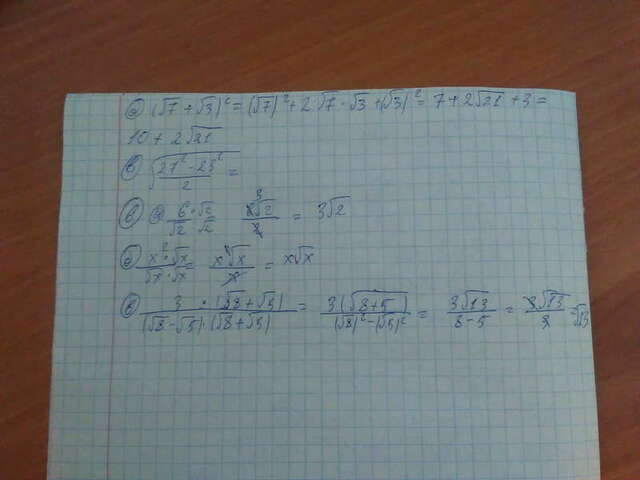 а) (√7 + √3)² = (√7)² + 2√7·√3 + (√3)² = 7 + 2√21 + 3 =
10 + 2√21
в) √((27² - 23²)/2) =
в) а) (6·√2)/(√2·√2) = (6√2)/2 = 3√2
б) (x²·√x)/(√x·√x) = (x²√x)/x = x√x
в) (3·(√8+√5))/((√8-√5)·(√8+√5)) = (3(√8+5))/((√8)²-(√5)²) = (3√13)/(8-5) = (3√13)/3 = √13